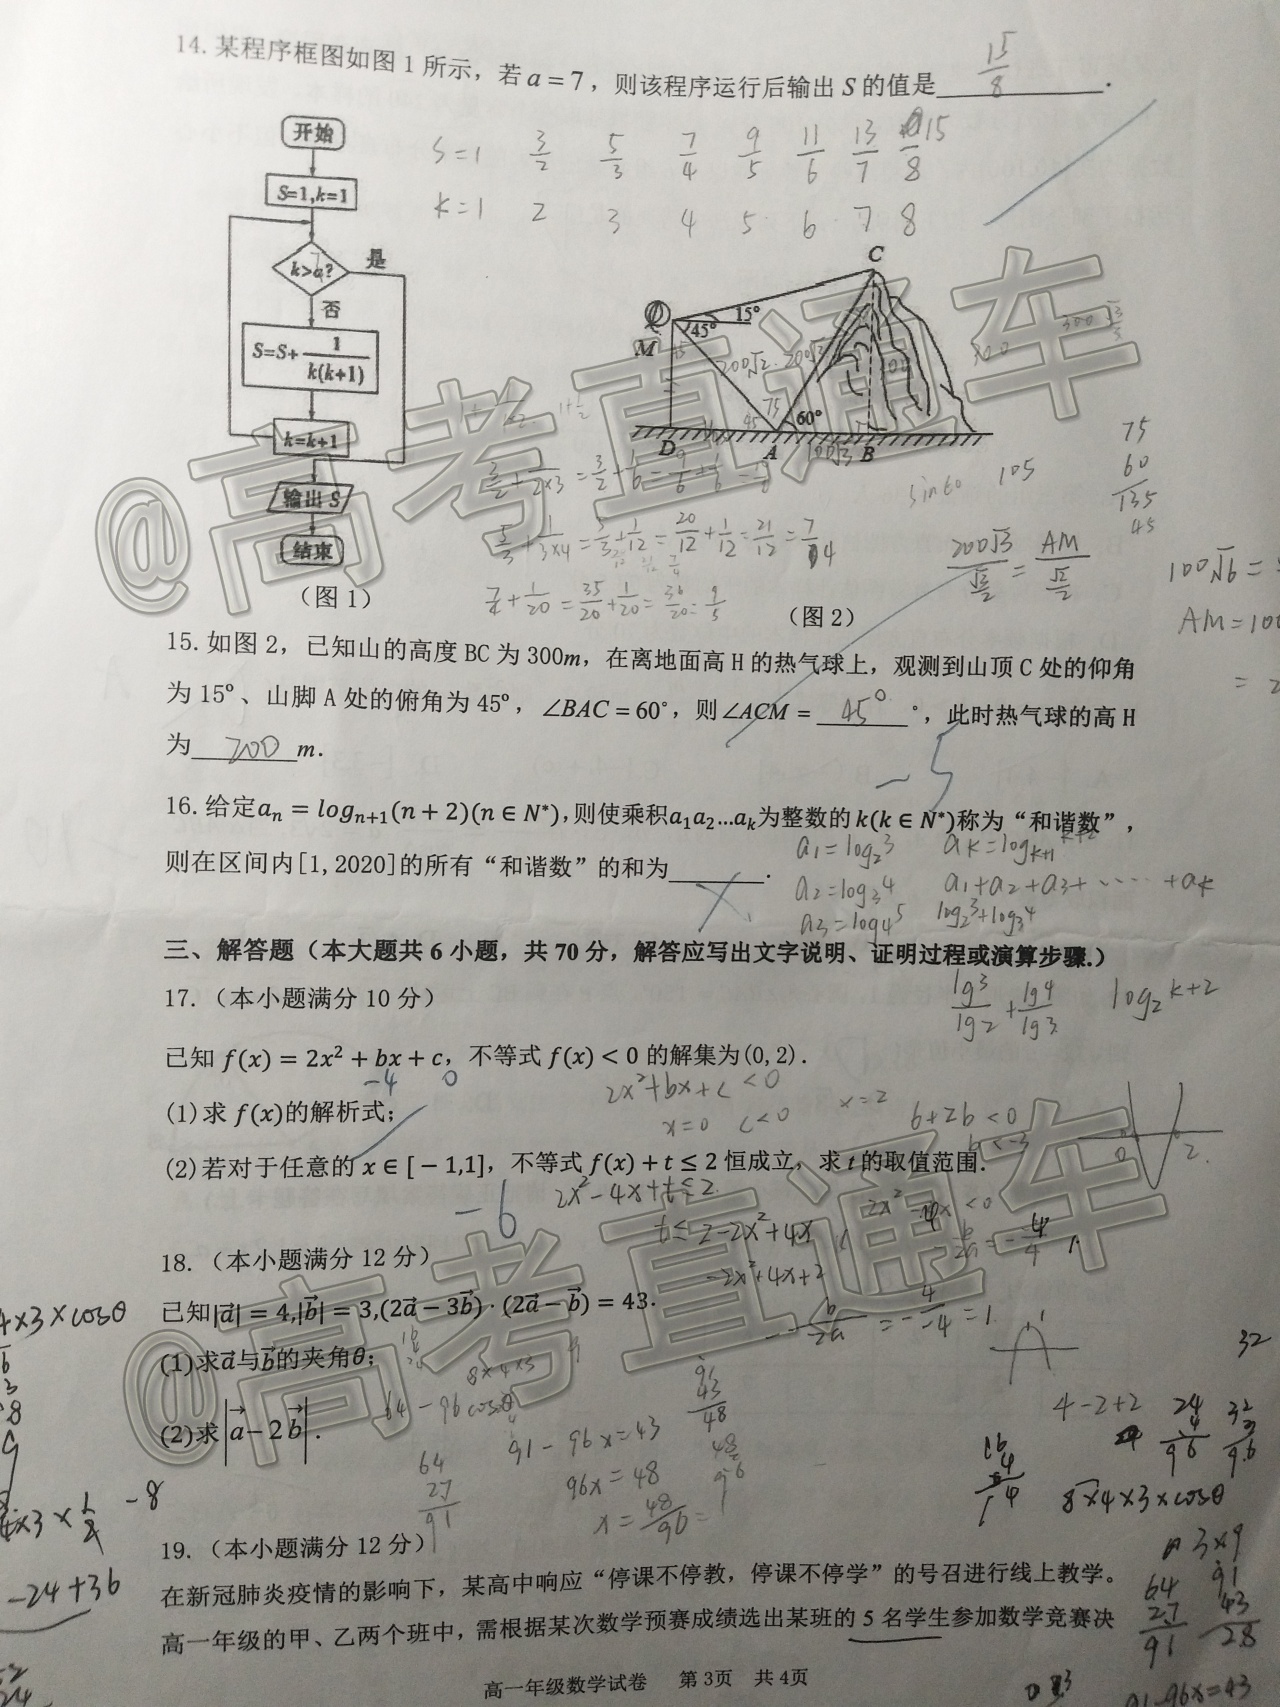 14. 某程序框图如图 1 所示，若 a = 7，则该程序运行后输出 S 的值是 15/8 .
开始
S=1,k=1
k>a?
是
否
S=S+ 1/k(k+1)
k=k+1
输出 S
结束
(图 1)
S=1 3/2 5/3 7/4 9/5 11/6 13/7 15/8
K=1 2 3 4 5 6 7 8
C
M
15°
45°
60°
D A B
(图 2)
3/2 + 1/2×3 = 3/2 + 1/6
5/3 + 1/3×4 = 5/3 + 1/12 = 20/12 + 1/12 = 21/12 = 7/4
7/4 + 1/20 = 35/20 + 1/20 = 36/20 = 9/5
sin60 105
75
60
135
45
200√3 / (√3/2) = AM / (√2/2)
100√6 =
AM = 100
15. 如图 2，已知山的高度 BC 为 300m，在离地面高 H 的热气球上，观测到山顶 C 处的仰角
为 15°、山脚 A 处的俯角为 45°，∠BAC = 60°，则∠ACM = 45° °，此时热气球的高 H
为 200 m.
-5
16. 给定aₙ = logₙ₊₁(n + 2)(n ∈ N*),则使乘积a₁a₂…aₖ为整数的 k(k ∈ N*)称为“和谐数”，
则在区间内[1,2020]的所有“和谐数”的和为 .
a₁=log₂3 aₖ=logₖ₊₁k+2
a₂=log₃4 a₁+a₂+a₃+……+aₖ
a₃=log₄5 log₂3+log₃4
三、解答题（本大题共 6 小题，共 70 分，解答应写出文字说明、证明过程或演算步骤.）
17.（本小题满分 10 分）
lg3/lg2 + lg4/lg3 log₂k+2
已知 f(x) = 2x² + bx + c，不等式 f(x) < 0 的解集为(0,2).
-4 0
2x²+bx+c<0
x=0 c<0 x=2
(1)求 f(x)的解析式;
(2)若对于任意的 x ∈ [ − 1,1]，不等式 f(x) + t ≤ 2 恒成立，求 t 的取值范围.
-6
2x²-4x+t≤2
t≤2-2x²+4x
-2x²+4x+2
18.（本小题满分 12 分）
已知|a⃗| = 4,|b⃗| = 3,(2a⃗ − 3b⃗) · (2a⃗ − b⃗) = 43.
(1)求a⃗与b⃗的夹角θ;
(2)求|a⃗ − 2b⃗|.
4×3×cosθ
64-96cosθ
8×4×3
91-96x=43
96x=48
x=48/96=
64
27
91
4-2+2
8×4×3×cosθ
32
-8
-24+36
19.（本小题满分 12 分）
在新冠肺炎疫情的影响下，某高中响应“停课不停教，停课不停学”的号召进行线上教学。
高一年级的甲、乙两个班中，需根据某次数学预赛成绩选出某班的 5 名学生参加数学竞赛决
3×9
64
27
91
91
43
28
高一年级数学试卷 第 3页 共 4页
91-96x=43
@高考直通车
@高考直通车